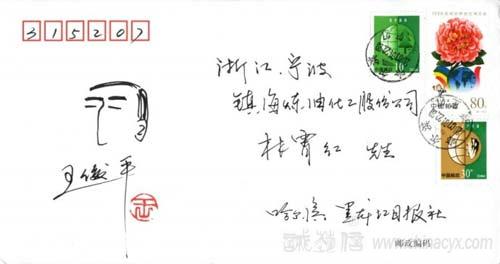 315207
浙江.宁波
镇海炼油化工股份公司
林霄红 先生
王俊平
哈尔滨 黑龙江日报社
邮政编码
中国邮政
80分
10分
中国邮政
30分
www.chinacyx.com